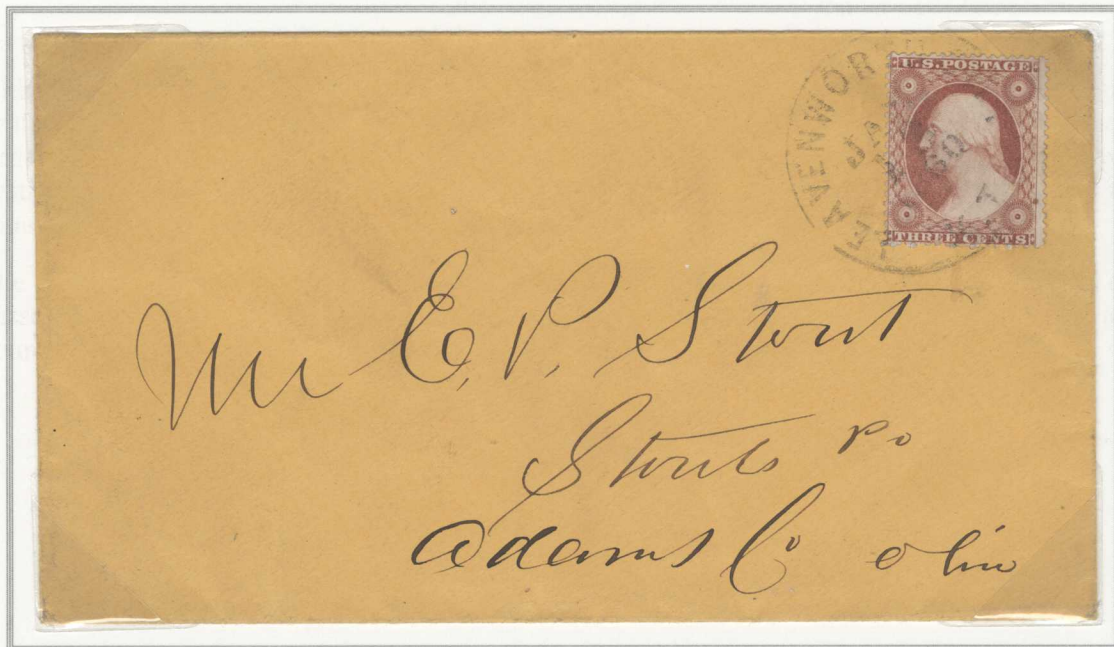 LEAVENWOR
JA
60
U.S. POSTAGE
THREE CENTS
Mr E. P. Stout
Stouts Po
Adams Co Ohio